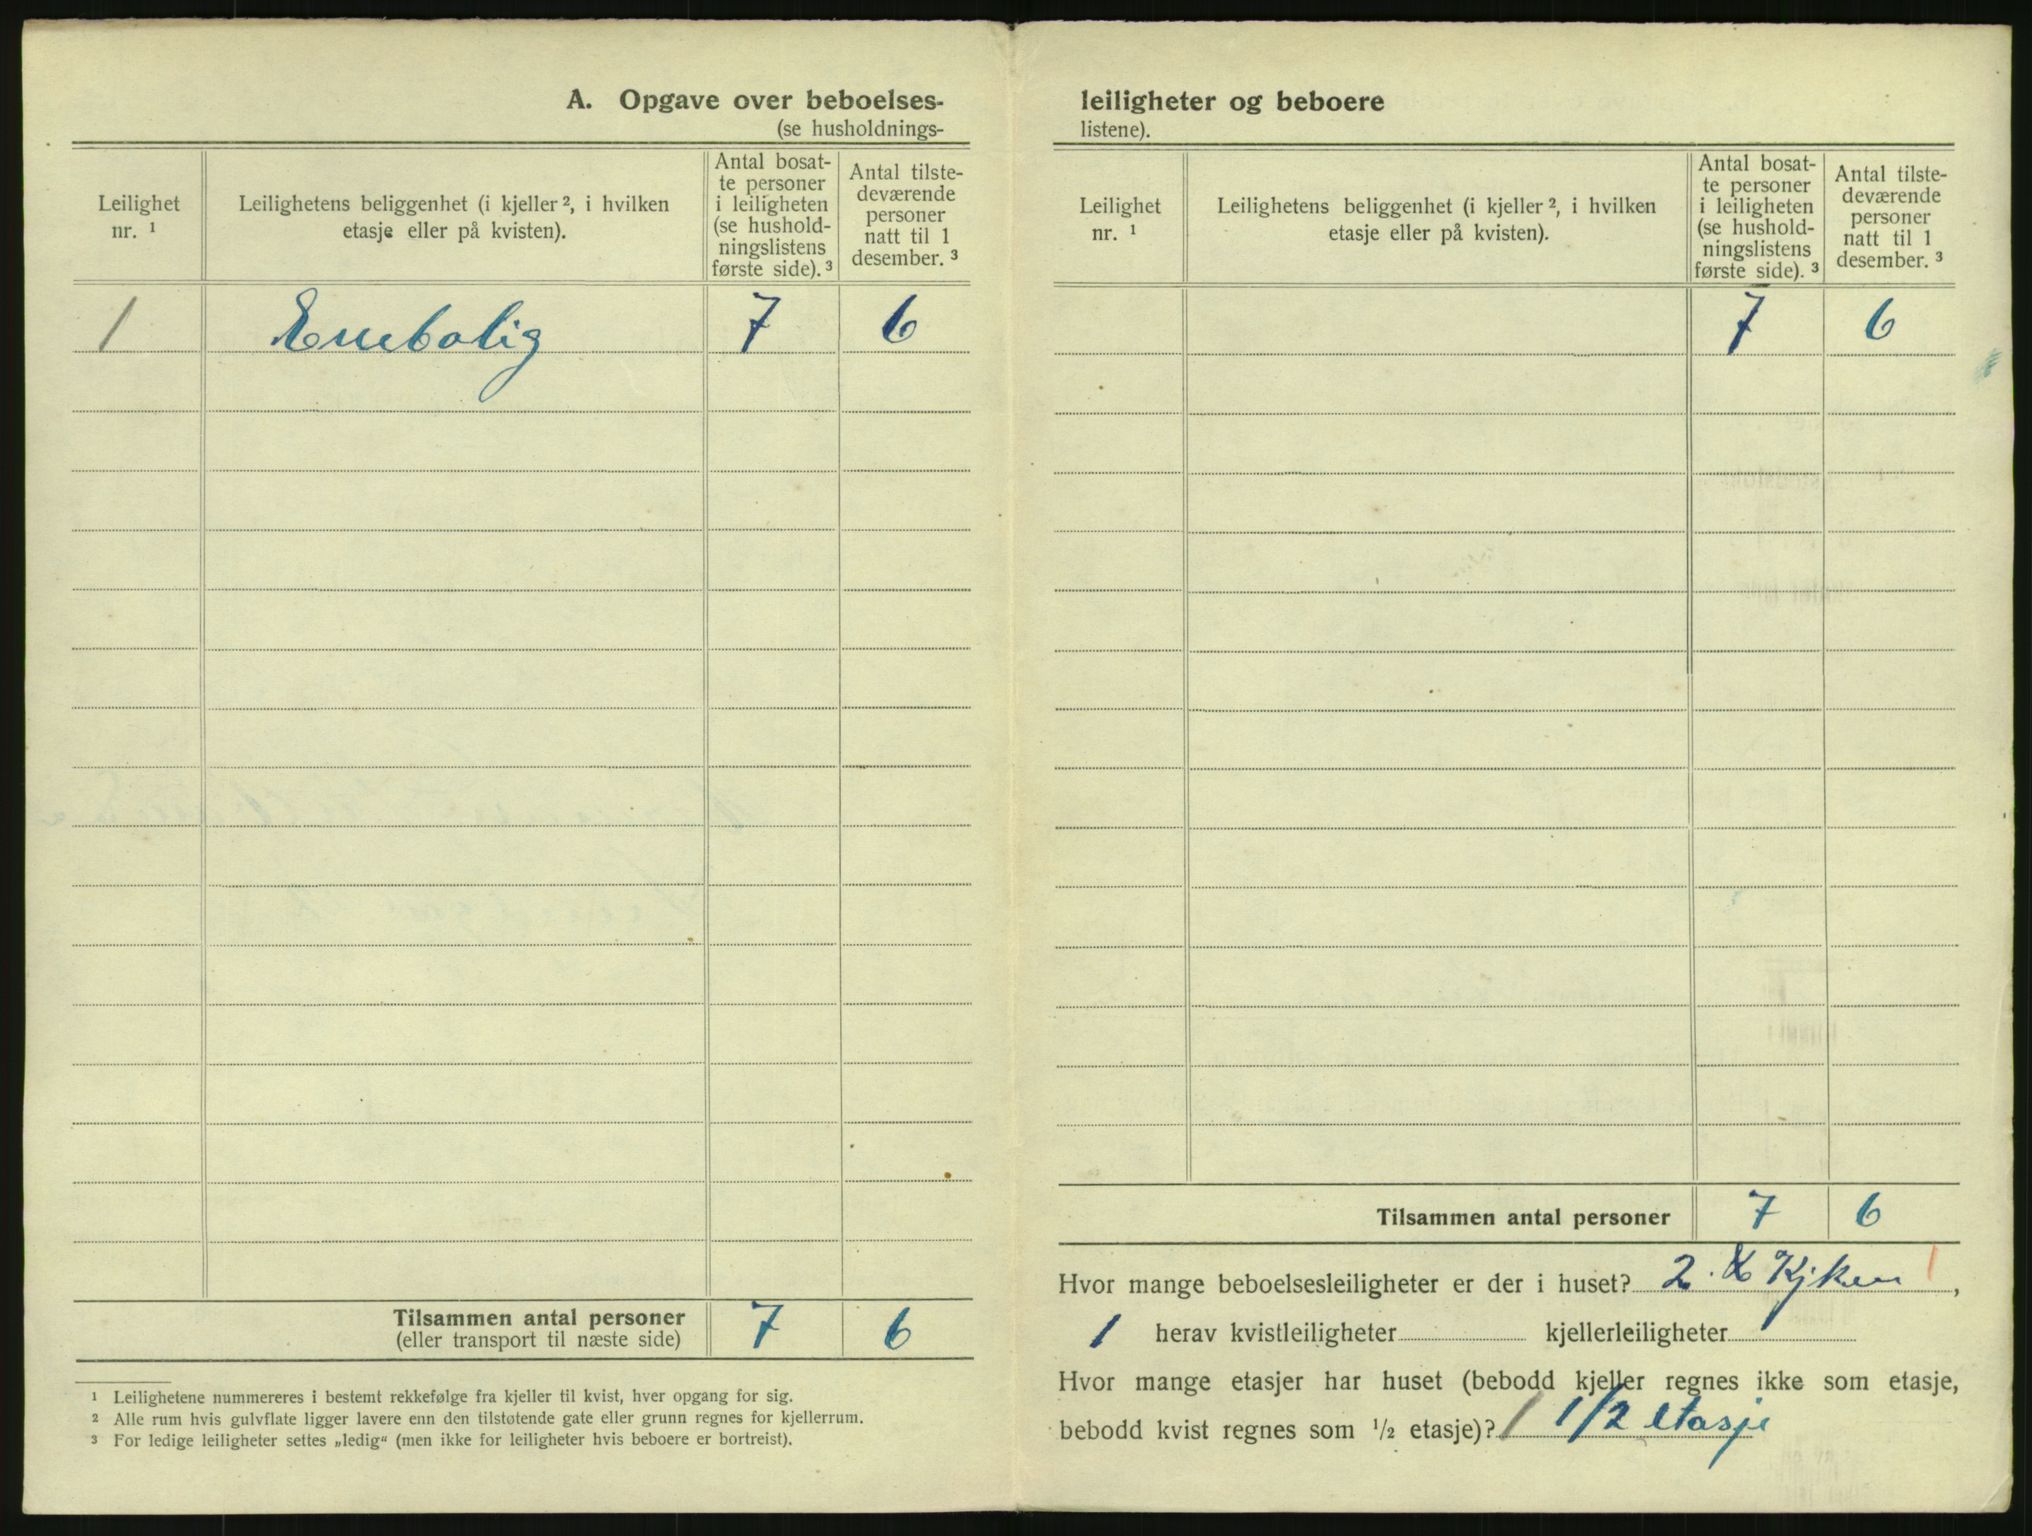 A. Opgave over beboelses-
(se husholdnings-
Leilighet
nr. ¹
Leilighetens beliggenhet (i kjeller ², i hvilken
etasje eller på kvisten).
Antal bosat-
te personer
i leiligheten
(se hushold-
ningslistens
første side). ³
Antal tilste-
deværende
personer
natt til 1
desember. ³
1 Enebolig 7 6
Tilsammen antal personer 7 6
(eller transport til næste side)
¹ Leilighetene nummereres i bestemt rekkefølge fra kjeller til kvist, hver opgang for sig.
² Alle rum hvis gulvflate ligger lavere enn den tilstøtende gate eller grunn regnes for kjellerrum.
³ For ledige leiligheter settes „ledig“ (men ikke for leiligheter hvis beboere er bortreist).
leiligheter og beboere
listene).
Leilighet
nr. ¹
Leilighetens beliggenhet (i kjeller ², i hvilken
etasje eller på kvisten).
Antal bosat-
te personer
i leiligheten
(se hushold-
ningslistens
første side). ³
Antal tilste-
deværende
personer
natt til 1
desember. ³
7 6
Tilsammen antal personer 7 6
Hvor mange beboelsesleiligheter er der i huset? 2. Kjken 1,
1 herav kvistleiligheter kjellerleiligheter
Hvor mange etasjer har huset (bebodd kjeller regnes ikke som etasje,
bebodd kvist regnes som ½ etasje)? 1 1/2 etasje